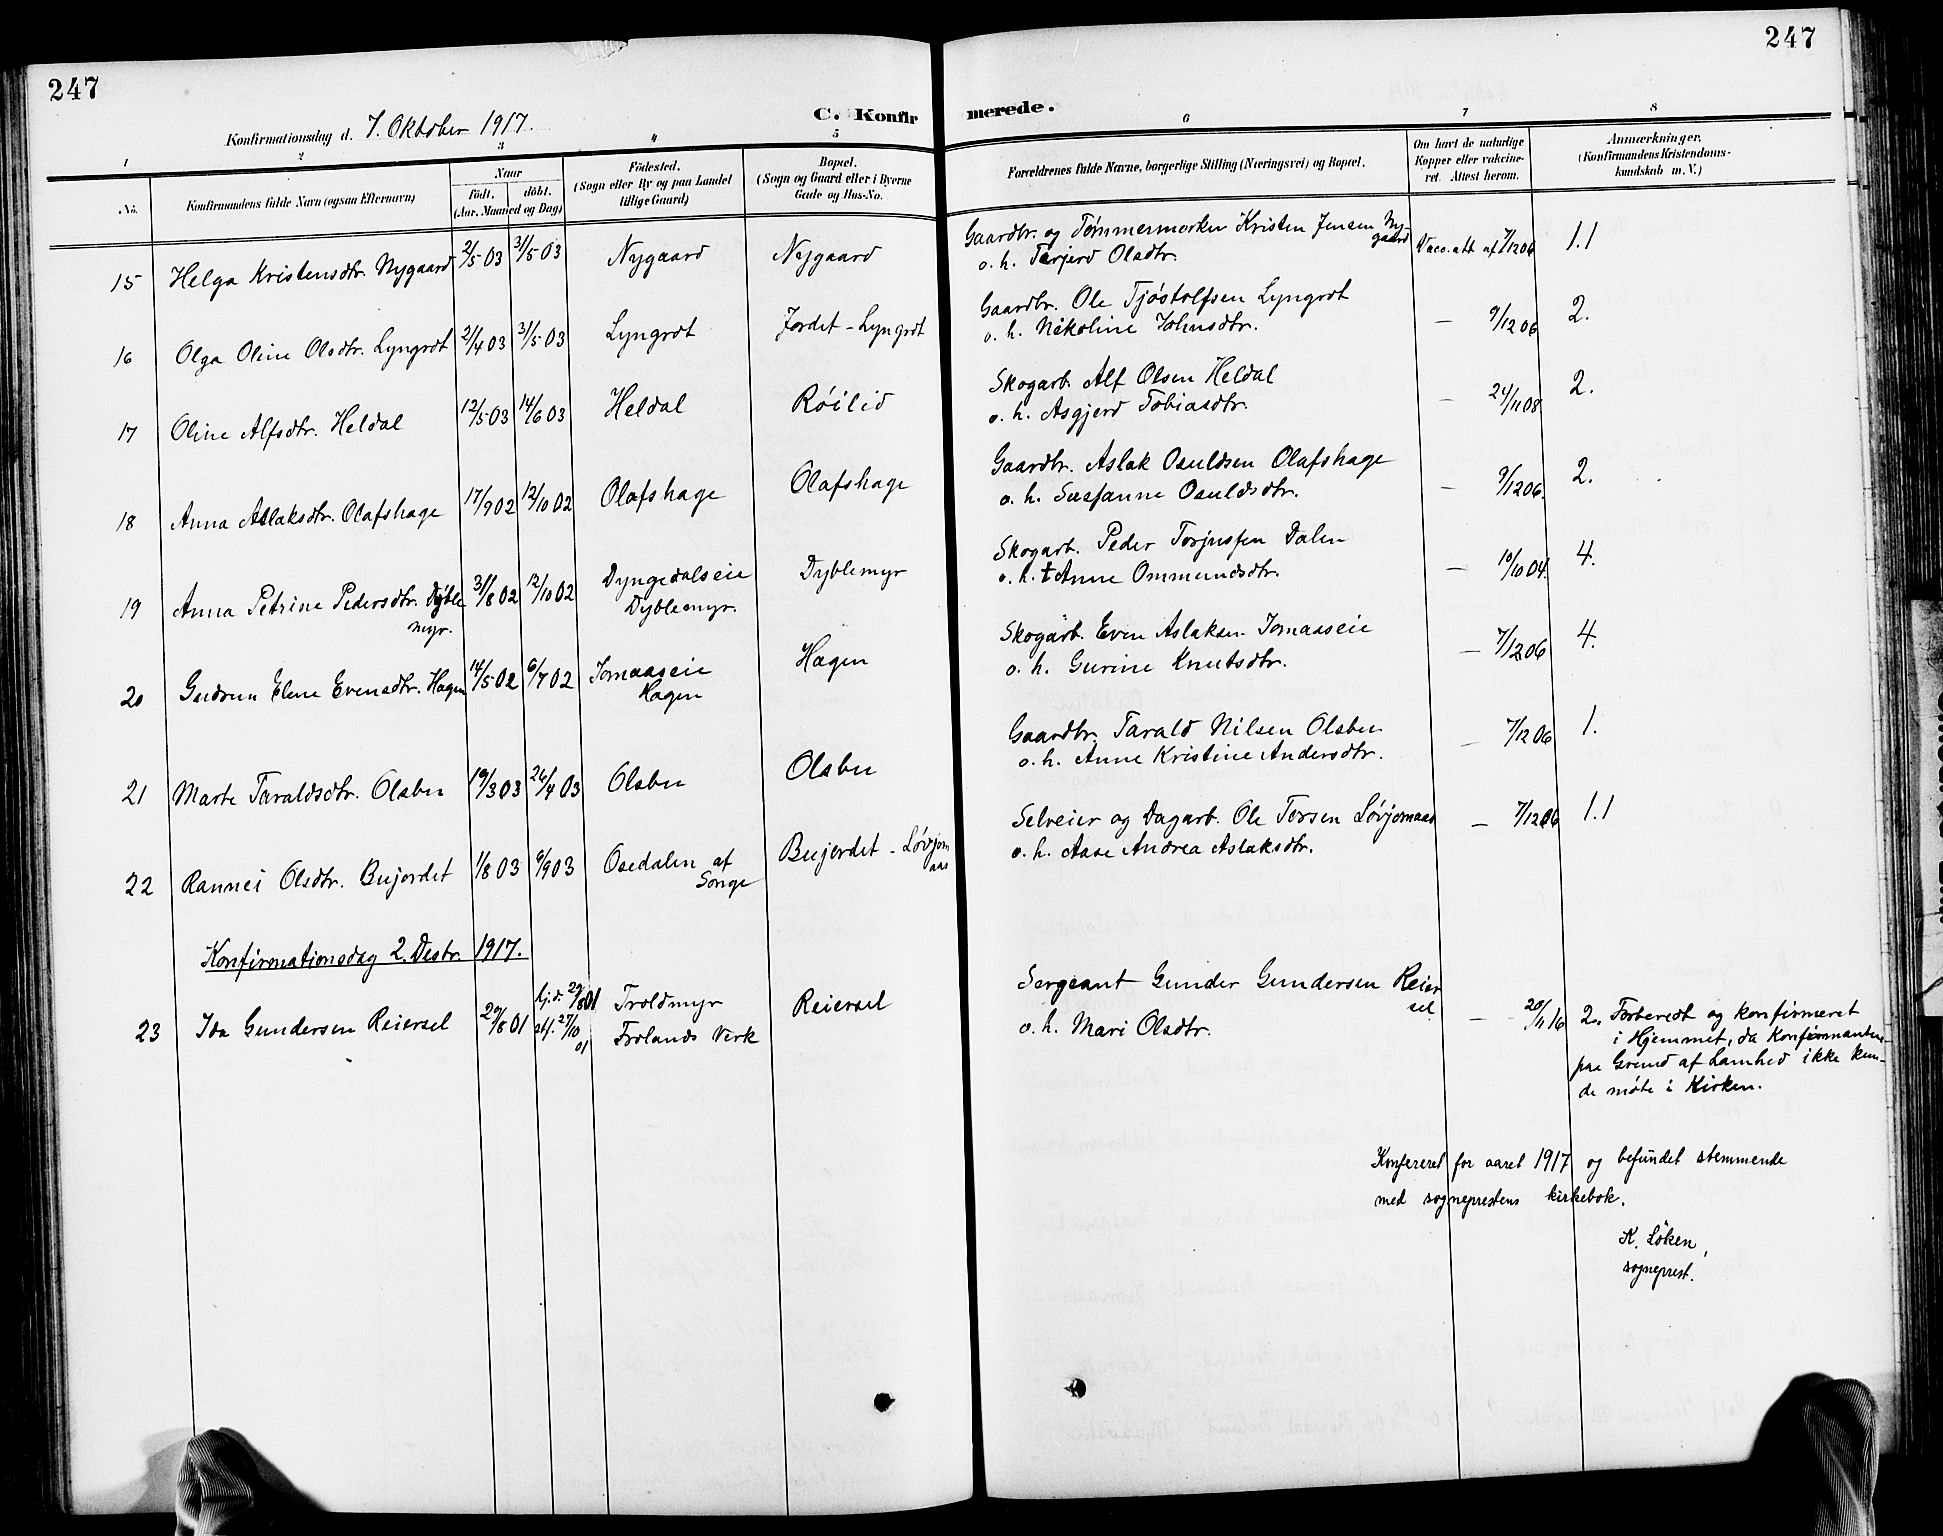 247
247
Konfirmationsdag d. 7. Oktober 1917.
C. Konfir
merede.
1 2 3 4 5 6 7 8
No. Konfirmandens fulde Navn (ogsaa Efternavn)
Naar
født. døbt.
(Aar, Maaned og Dag)
Fødested.
(Sogn eller By og paa Landet
tillige Gaard)
Bopæl.
(Sogn og Gaard eller i Byerne
Gade og Hus-No.
Forældrenes fulde Navne, borgerlige Stilling (Næringsvei) og Bopæl.
Om havt de naturlige
Kopper eller vakcine-
ret. Attest herom.
Anmærkninger,
(Konfirmandens Kristendoms-
kundskab m. V.)
15 Helga Kristensdtr. Nygaard 2/5 03 31/5 03 Nygaard Nygaard Gaardbr. og Tømmermerker Kristen Jensen Ny
gaard
o. h. Terjerd Olsdtr. Vacc. att af 7/12 06 1.1
16 Olga Oline Olsdtr. Lyngrot 21/4 03 31/5 03 Lyngrot Jordet - Lyngrot Gaardbr. Ole Tjøstolfsen Lyngrot
o. h. Nikoline Johnsdtr. — 9/12 06 2.
17 Oline Alfsdtr. Heldal 12/5 03 14/6 03 Heldal Røilid Skogarb. Alf Olsen Heldal
o. h. Asgjerd Tobiasdtr. — 24/11 08 2.
18 Anna Aslaksdtr. Olafshage 17/9 02 12/10 02 Olafshage Olafshage Gaardbr. Aslak Osuldsen Olafshage
o. h. Susanne Osuldsdtr. — 9/12 06. 2.
19 Anna Petrine Pedersdtr. Dyble
myr. 31/8 02 12/10 02 Dyngedalseie
Dyblemyr. Dyblemyr Skogarb. Peder Torjussen Dalen
o. h. † Anne Ommundsdtr. — 10/10 04. 4.
20 Gudrun Elene Evensdtr. Hagen 14/5 02 6/7 02 Jomaaseie
Hagen Hagen Skogarb. Even Aslaksen Jomaaseie
o. h. Gurine Knutsdtr. — 7/12 06 4.
21 Marte Taraldsdtr. Olsbu 19/3 03 26/4 03 Olsbu Olsbu Gaardbr. Tarald Nilsen Olsbu
o. h. Anne Kristine Andersdtr. — 7/12 06 1.
22 Rannei Olsdtr. Bujordet 1/8 03 6/9 03 Osedalen af
Songe Bujordet - Løvjom
aas Selveier og Dagarb. Ole Torsen Løvjomaas
o. h. Aase Andrea Aslaksdtr. — 7/12 06 1.1
Konfirmationsdag 2. Desbr. 1917.
23 Ida Gundersen Reiersel 29/8 01 hj.d. 29/8 01
stf. 27/10
01 Troldmyr
Frolands Verk Reiersel Sergeant Gunder Gundersen Reier
sel
o. h. Mari Olsdtr. — 20/11 16 2. Forberedt og konfirmeret
i Hjemmet, da Konfirmanten
paa Grund af Lamhed ikke kun-
de møte i Kirken.
Konfereret for aaret 1917 og befundet stemmende
med sogneprestens kirkebok.
K. Løken,
sogneprest.